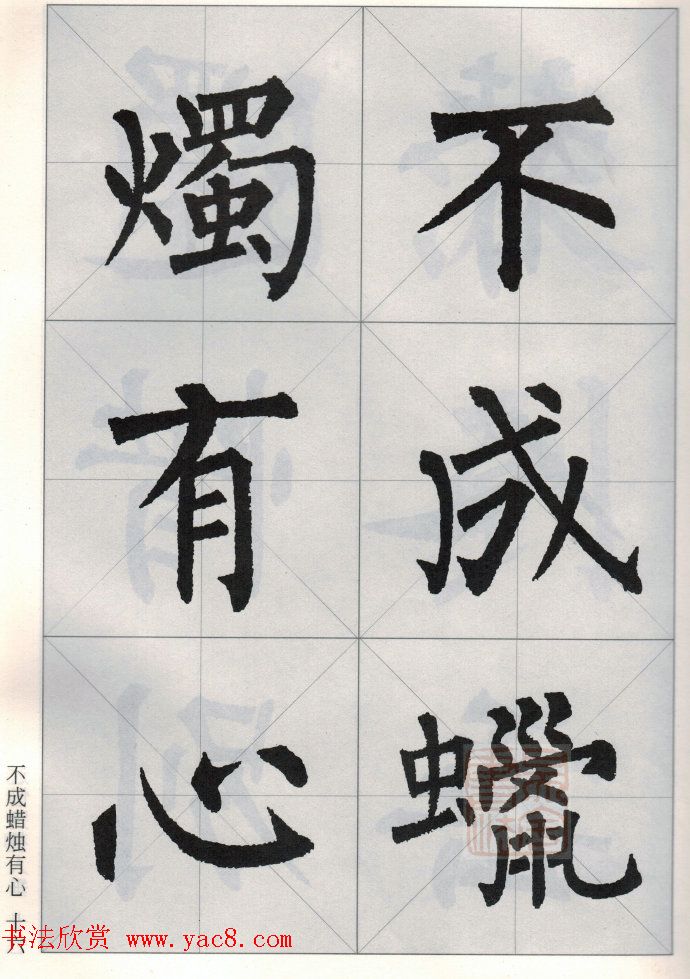 不成蠟
燭有心
不成蜡烛有心 十六
书法欣赏 www.yac8.com